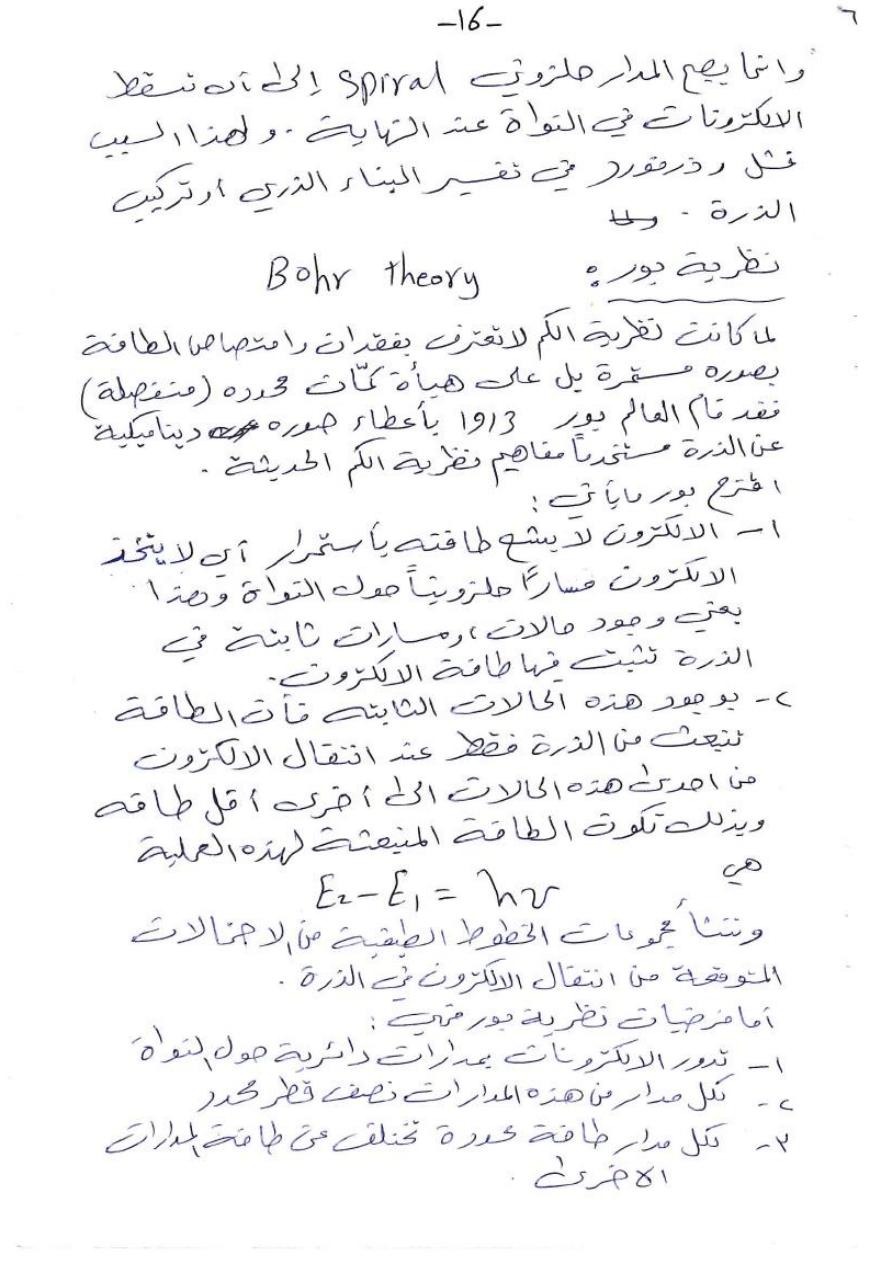 -16-
٦
وانما يصبح المدار حلزوني Spiral إلى أن تسقط
الالكترونات في النواة عند النهاية . ولهذا السبب
فشل رذرفورد في تفسير البناء الذري أو تركيب
الذرة .
نظرية بور : Bohr theory
لما كانت نظرية الكم لا تعترف بفقدان وامتصاص الطاقة
بصوره مستمرة بل على هيأة كمّات محدوده (منفصلة)
فقد قام العالم بور 1913 بأعطاء صوره ديناميكية
عن الذرة مستخدماً مفاهيم نظرية الكم الحديثة .
اقترح بور ما يأتي :
١- الالكترون لا يشع طاقته بأستمرار أي لا يتخذ
الالكترون مساراً حلزونياً حول النواة وهذا
يعني وجود حالات او مسارات ثابتة في
الذرة تثبت فيها طاقة الالكترون .
٢- بوجود هذه الحالات الثابته فأن الطاقة
تنبعث من الذرة فقط عند انتقال الالكترون
من احدى هذه الحالات الى أخرى أقل طاقه
وبذلك تكون الطاقة المنبعثة لهذه العملية
هي
E₂ - E₁ = hν
وتنشأ مجموعات الخطوط الطيفية من الاحتمالات
المتوقعة من انتقال الالكترون في الذرة .
أما فرضيات نظرية بور فهي :
١- تدور الالكترونات بمدارات دائرية حول النواة
٢- لكل مدار من هذه المدارات نصف قطر محدد
٣- لكل مدار طاقة محددة تختلف عن طاقة المدارات
الاخرى .